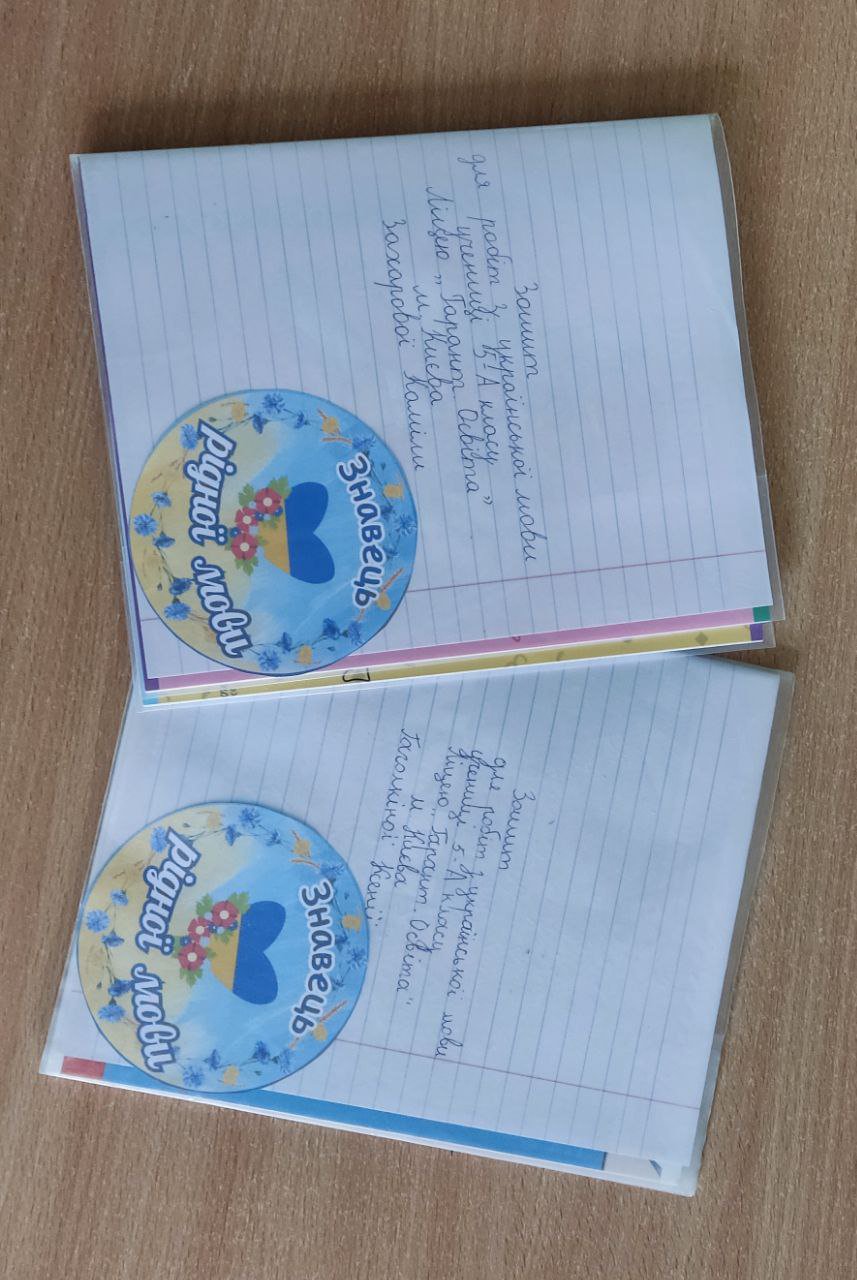 Зошит
для робіт з української мови
учениці 5-А класу
Ліцею „Гарант Освіта”
м. Києва
Захарової Каміли
Знавець
рідної мови
Зошит
для робіт з української мови
учениці 5-А класу
Ліцею „Гарант. Освіта”
м Києва
Гаголкіної Ксенії
Знавець
рідної мови